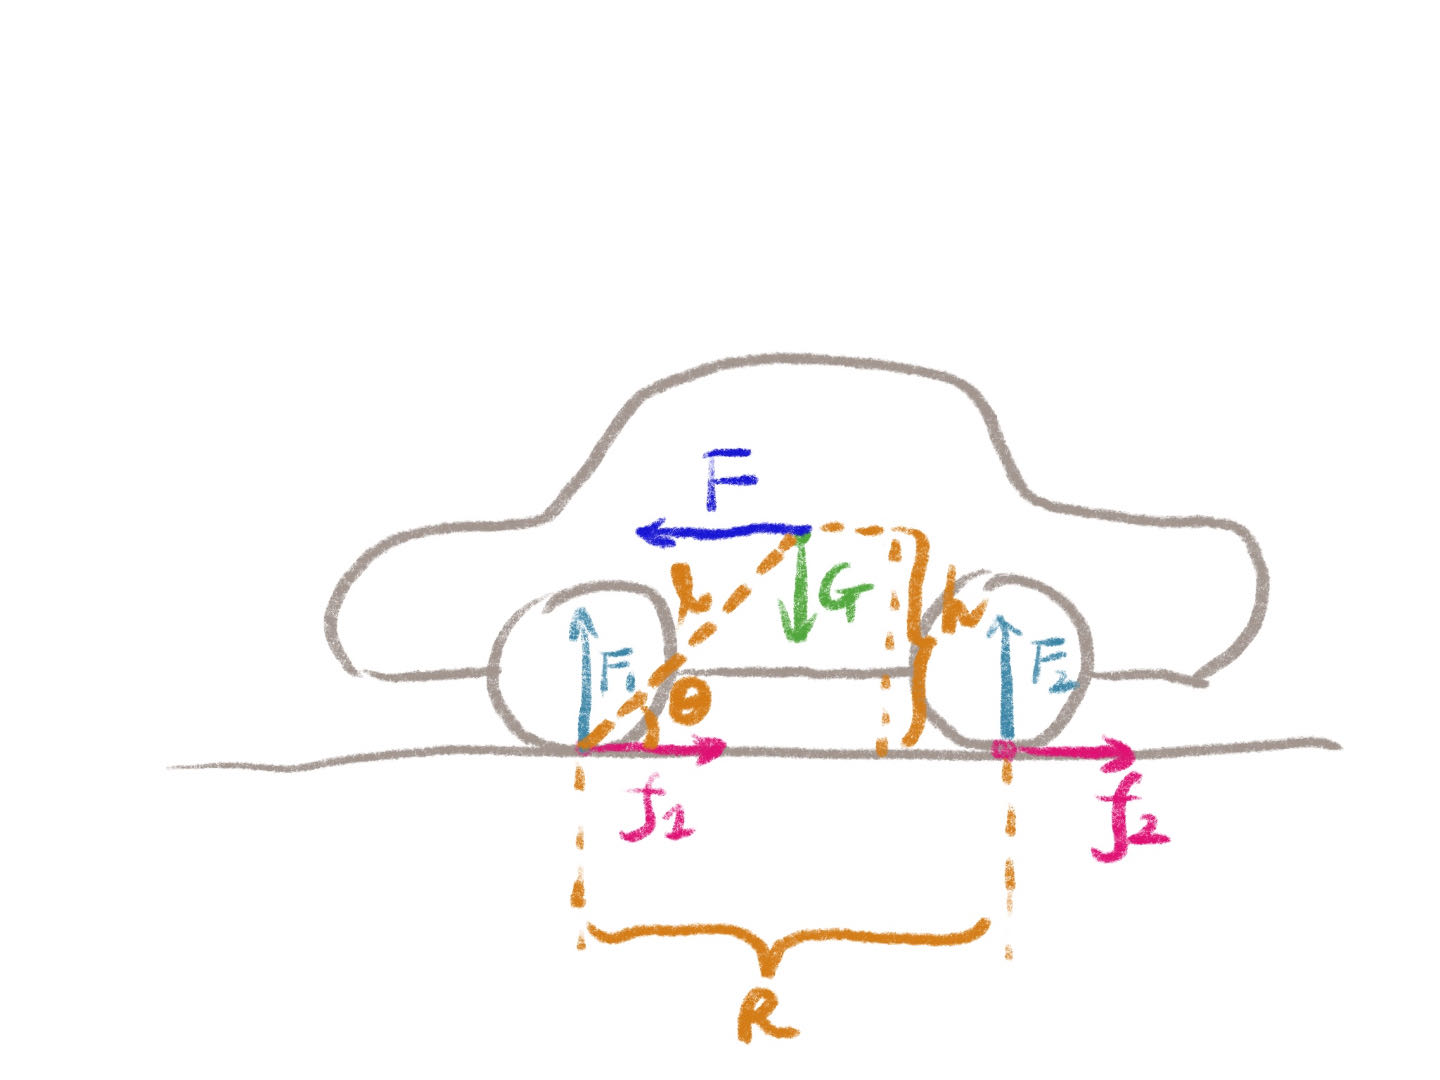 F
l
G
h
F1
θ
F2
f1
f2
R